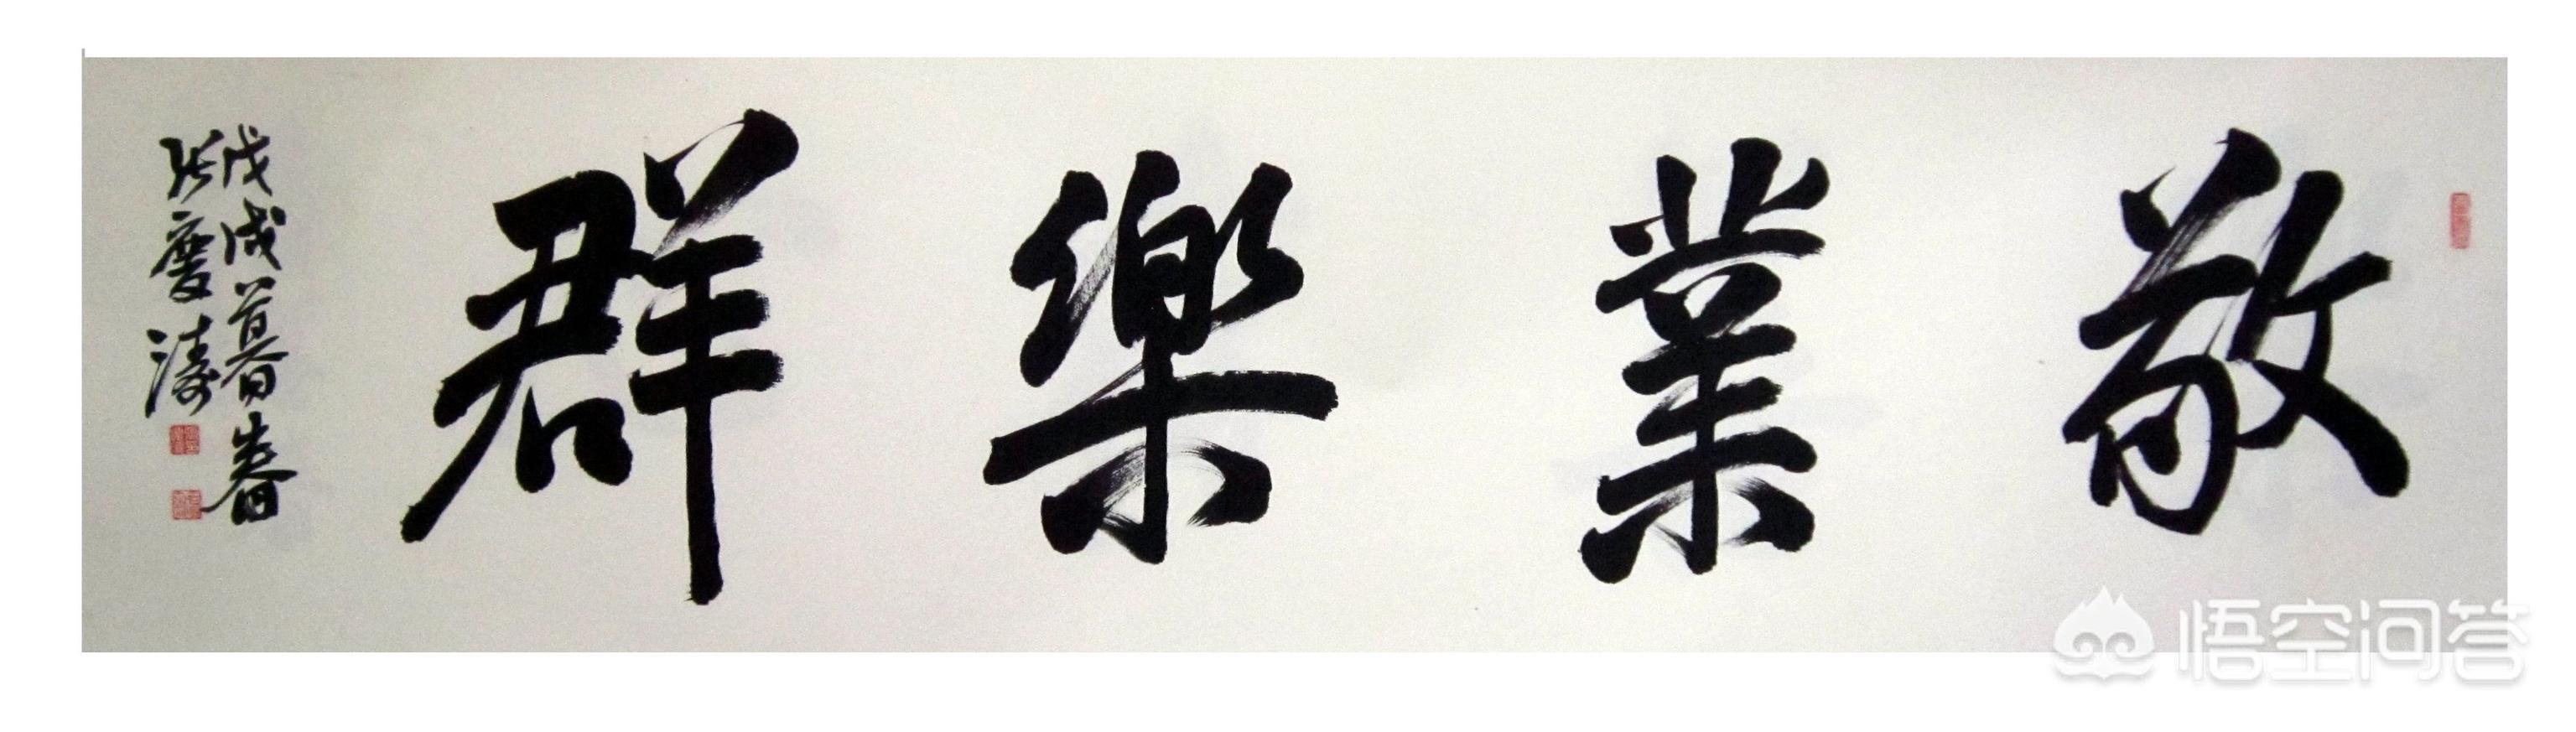 敬業樂群
戊戌暮春
張慶濤
悟空问答